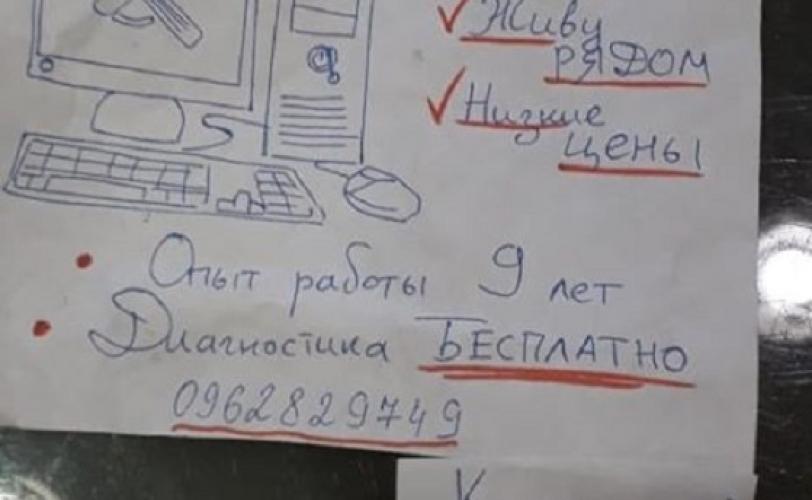 ✓ Живу
РЯДОМ
✓ Низкие
ЦЕНЫ
• Опыт работы 9 лет
• Диагностика БЕСПЛАТНО
0962829749